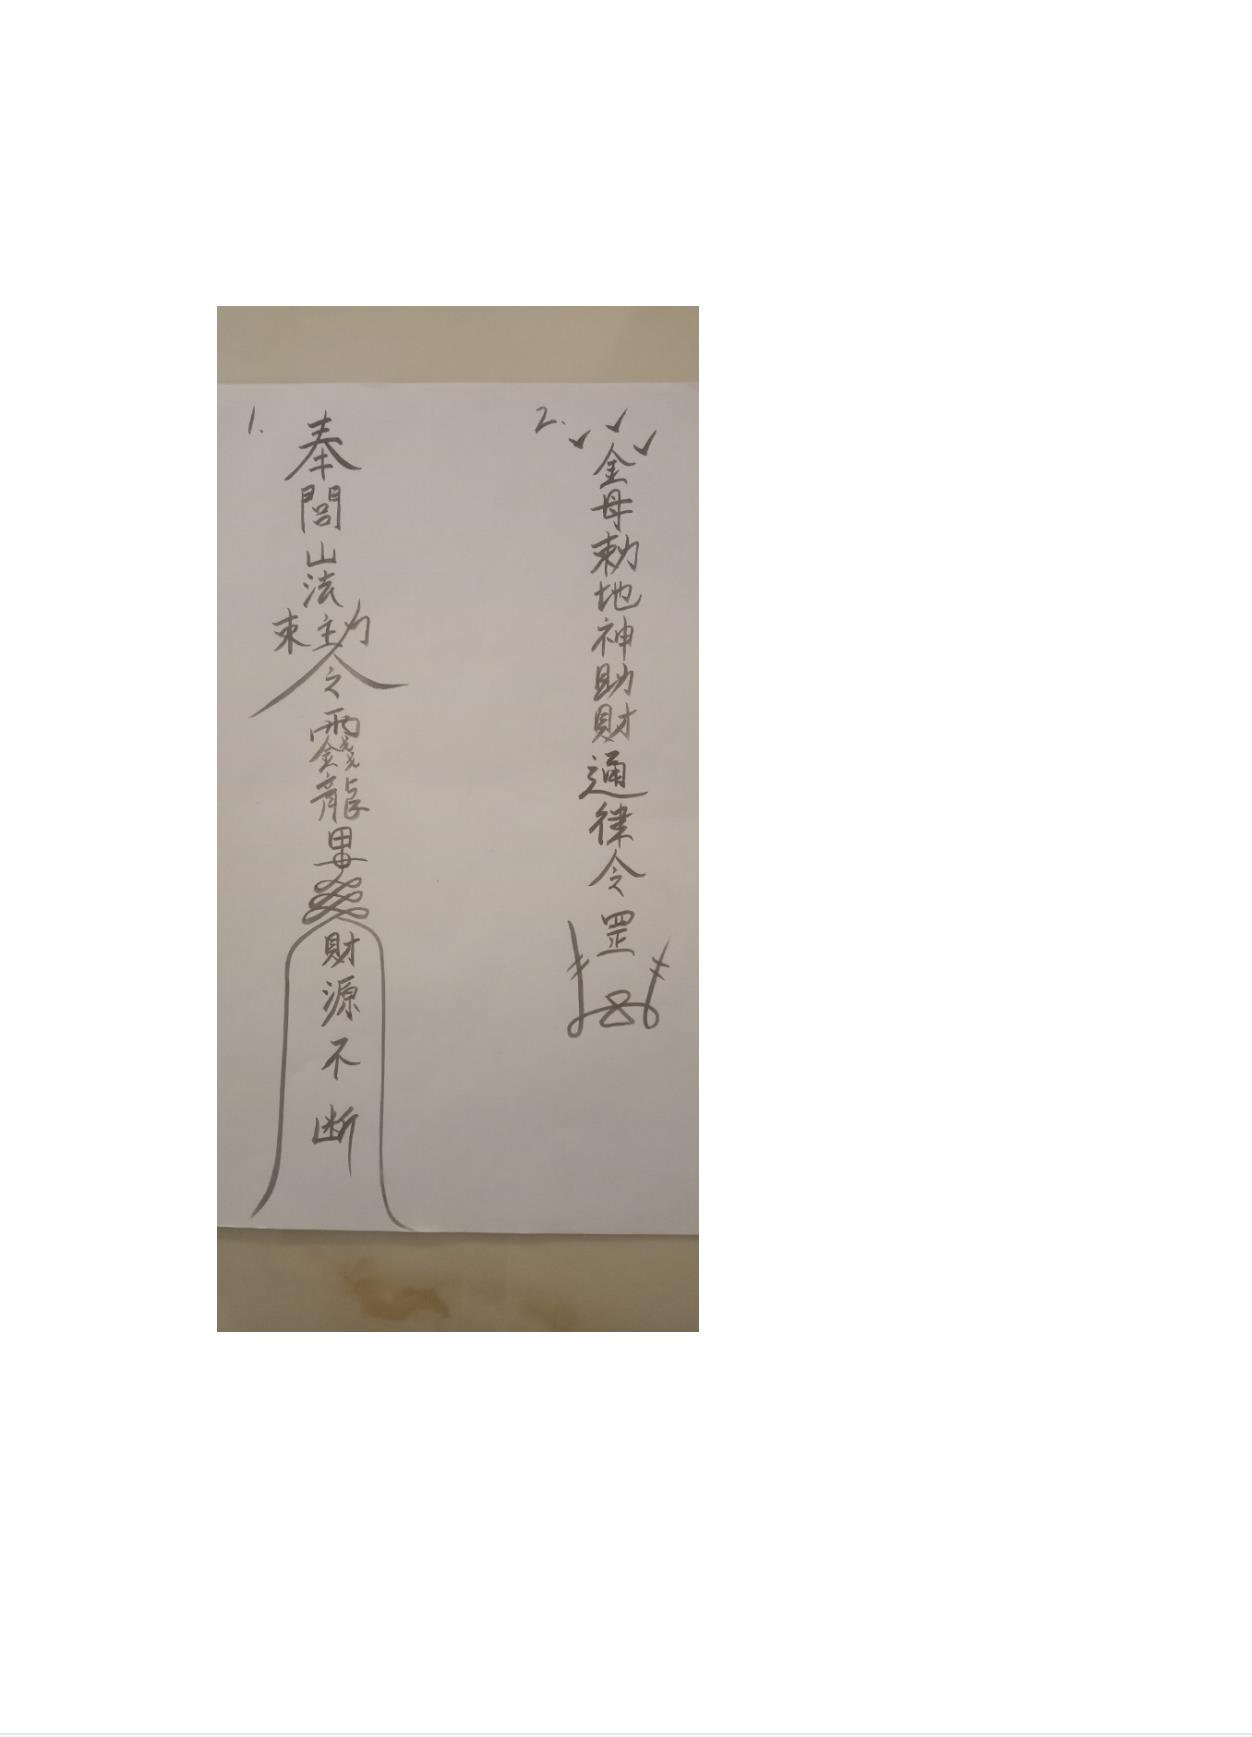 1.
奉閭山法主敕令
龍
財源不断
2.
金母勅地神助財通律令罡